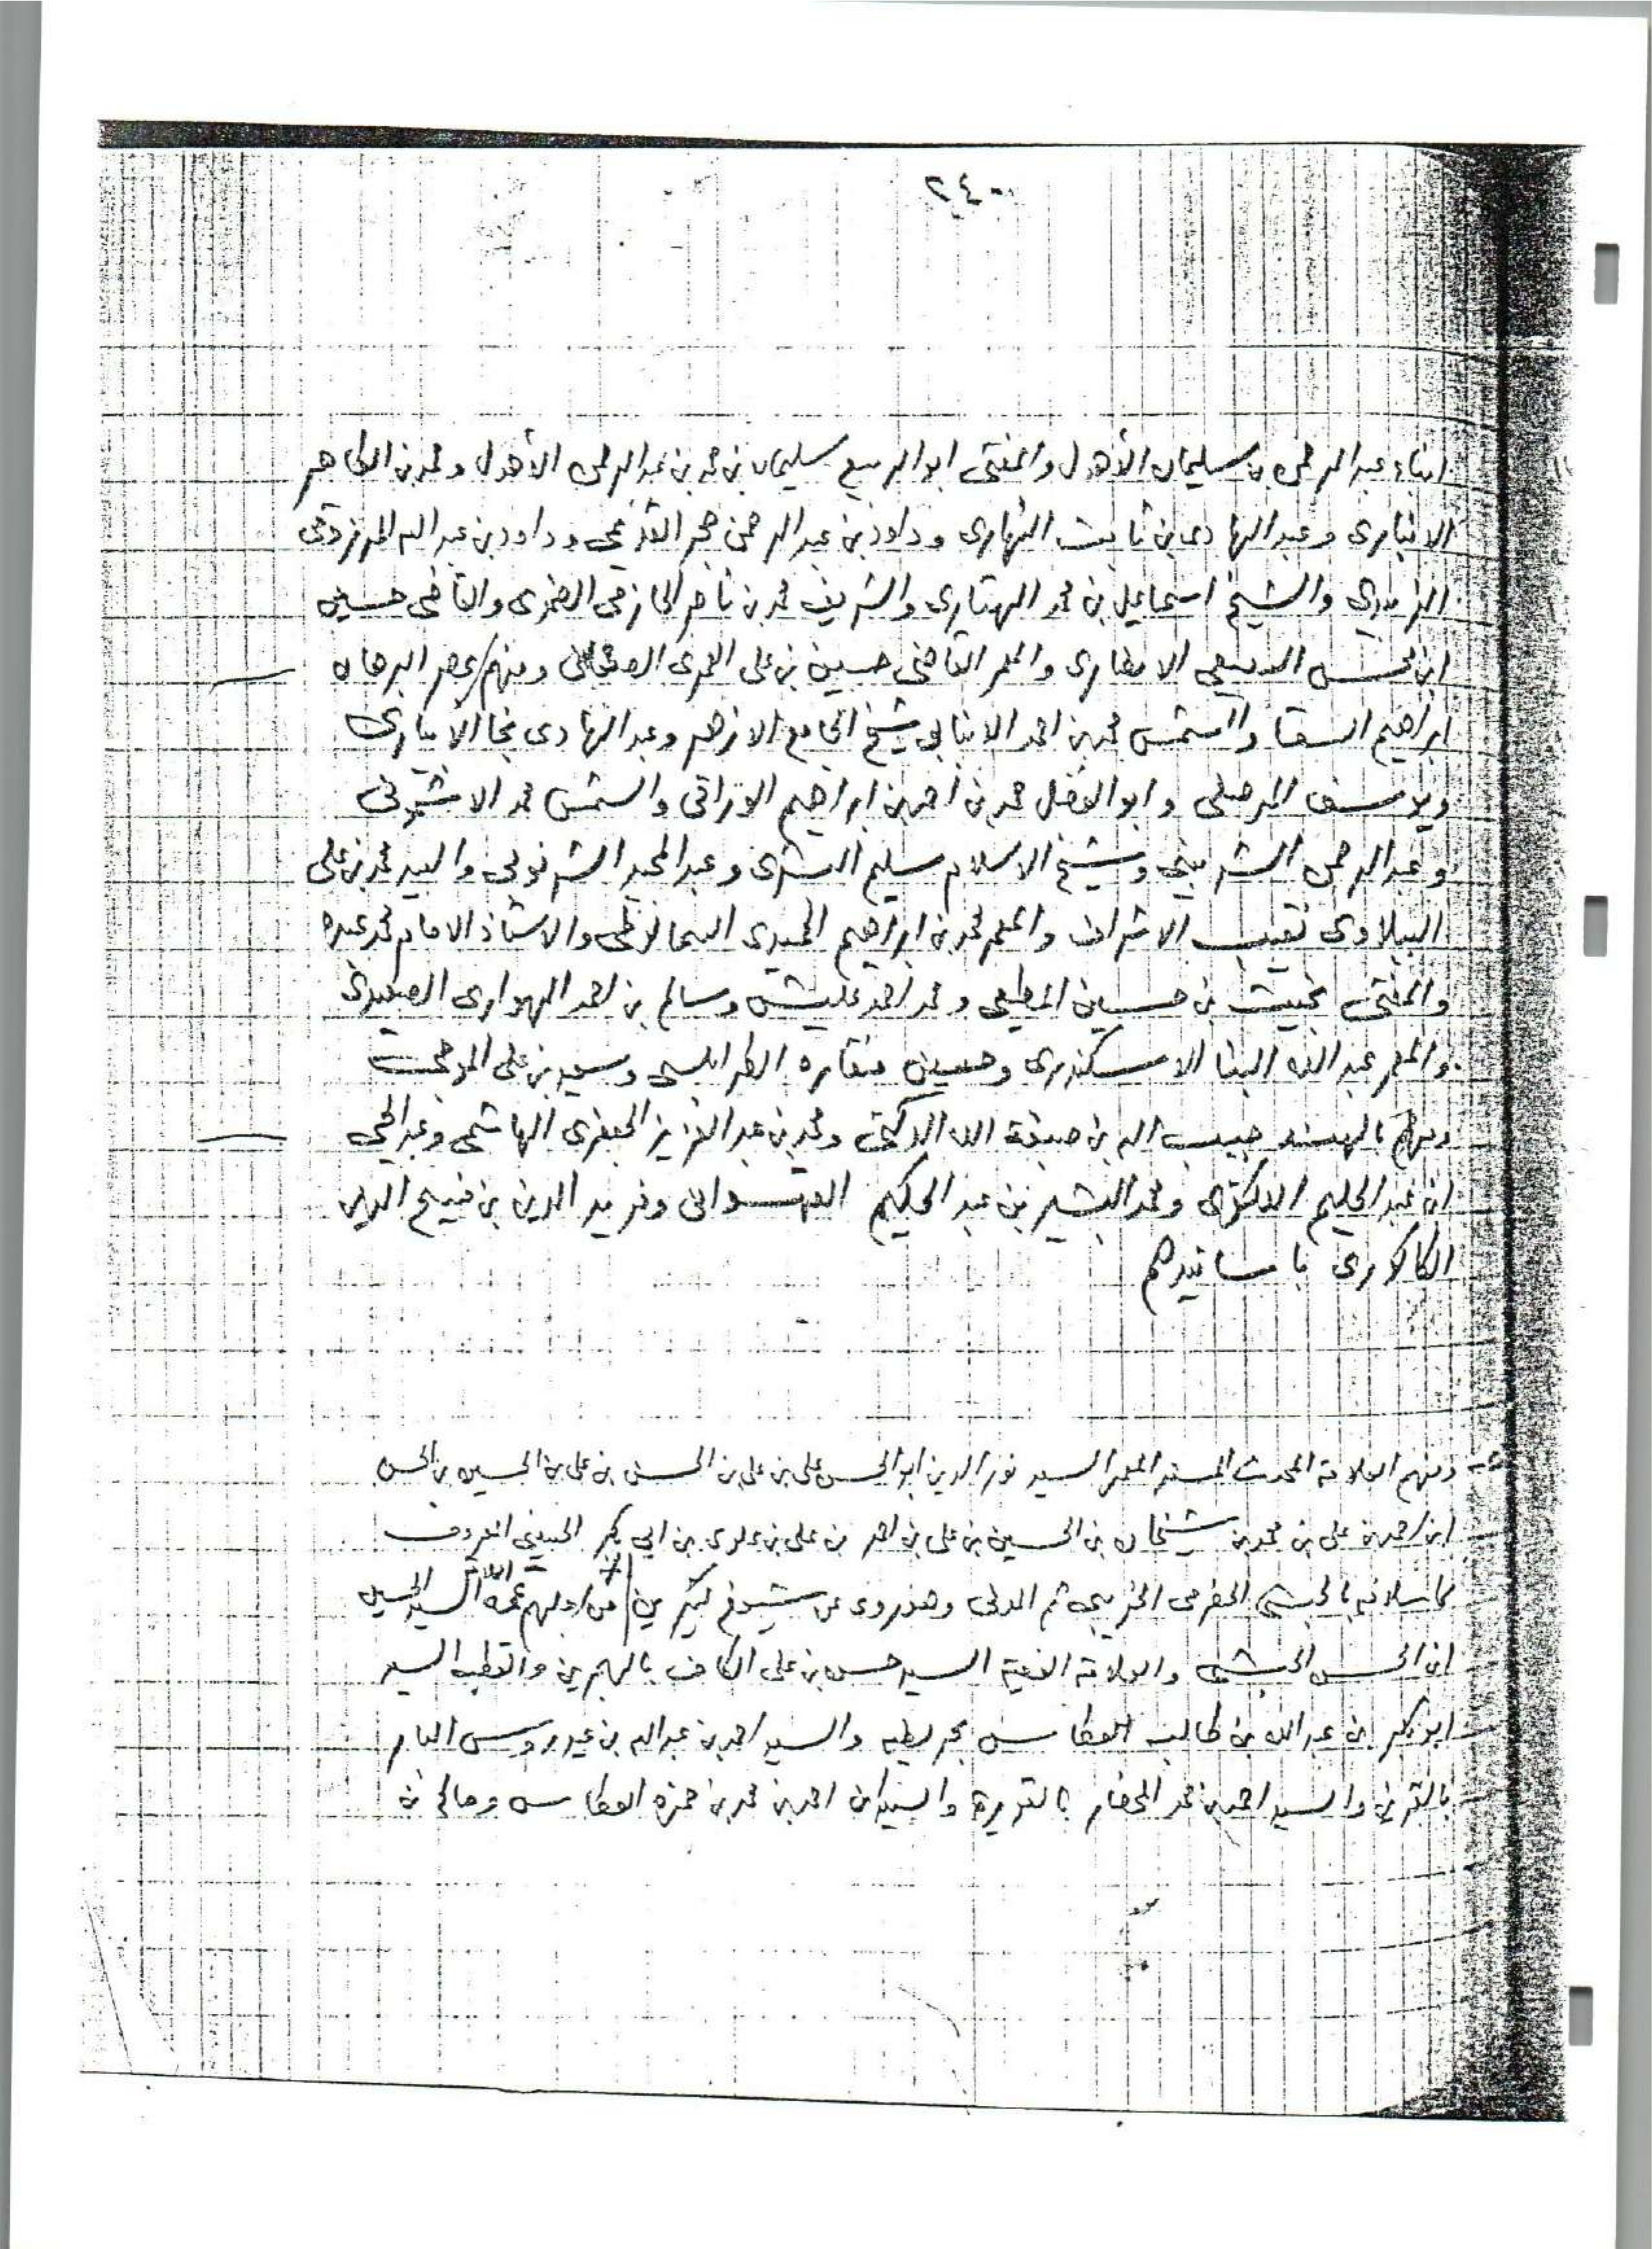 ٢٤٠
ابناء عبد الرحمن بن سليمان الأهدل والمفتى ابو الربيع سليمان بن محمد بن عبد الرحمن الأهدل ومحمد بن الطاهر
الانبارى وعبد الهادى بن ثابت النهارى وداود بن عبد الرحمن حجر القديمى وداود بن عبد الله المرزوقى
الزبيدي والشيخ اسماعيل بن محمد والشريف محمد بن ناصر الحازمى الضمدى والقاضى حسين
ابن محسن السبيعى الانصارى والمعمر القاضى حسين بن على العمرى الصنعانى ومنهم بمصر البرهان
ابراهيم السقا والشمس محمد بن احمد الانبابى شيخ الجامع الازهر وعبد الهادى نجا الأبيارى
ويوسف المرصفى وابو الفضل محمد بن احمد بن ابراهيم والشمس محمد الاشمونى
وعبد الرحمن الشربينى وشيخ الاسلام سليم البشرى وعبد المجيد الشرنوبى والسيد محمد بن على
الببلاوى نقيب الاشراف والمعمر محمد بن ابراهيم الحميدى السمالوطى والاستاذ الامام محمد عبده
والمفتى بخيت بن حسين المطيعى ومحمد احمد عليش وسالم بن احمد الهوارى الصعيدى
والمعمر عبد الله البنا الاسكندرى وحسين منقاره الطرابلسى وسعيد بن على الموجى
ومنهم بالهند حبيب الله بن صبغة الله ومحمد بن عبد العزيز الجعفرى الهاشمى وعبد الحى
ابن عبد الحليم اللكنوى ومحمد البشير بن عبد الحكيم السهسوانى وفريد الدين بن فسيح الدين
الكاكورى باسانيدهم
ومنهم العلامة المحدث المسند المعمر السيد نور الدين ابو الحسن على بن على بن الحسن بن على بن الحسين بن الحسن
ابن احمد بن على بن محمد بن شيخان بن الحسين بن على بن احمد بن على بن علوى بن ابى بكر الحسينى المعروف
كاسلافه بالحبشى الحضرمى ثم المدنى وهو روى عن شيوخ كثيرين من اولهم عمه السيد الحسين
ابن الحسن الحبشى والعلامة الفقيه السيد حسن بن على الكاف بالهجرين والقطب السيد
ابو بكر بن عبد الله بن طالب العطاس بحريضه والسيد احمد بن عبد الله بن عيدروس البار
بالقرين والسيد احمد بن محمد المحضار بالقويرة والسيدان احمد بن محمد بن حمزه العطاس وصالح بن